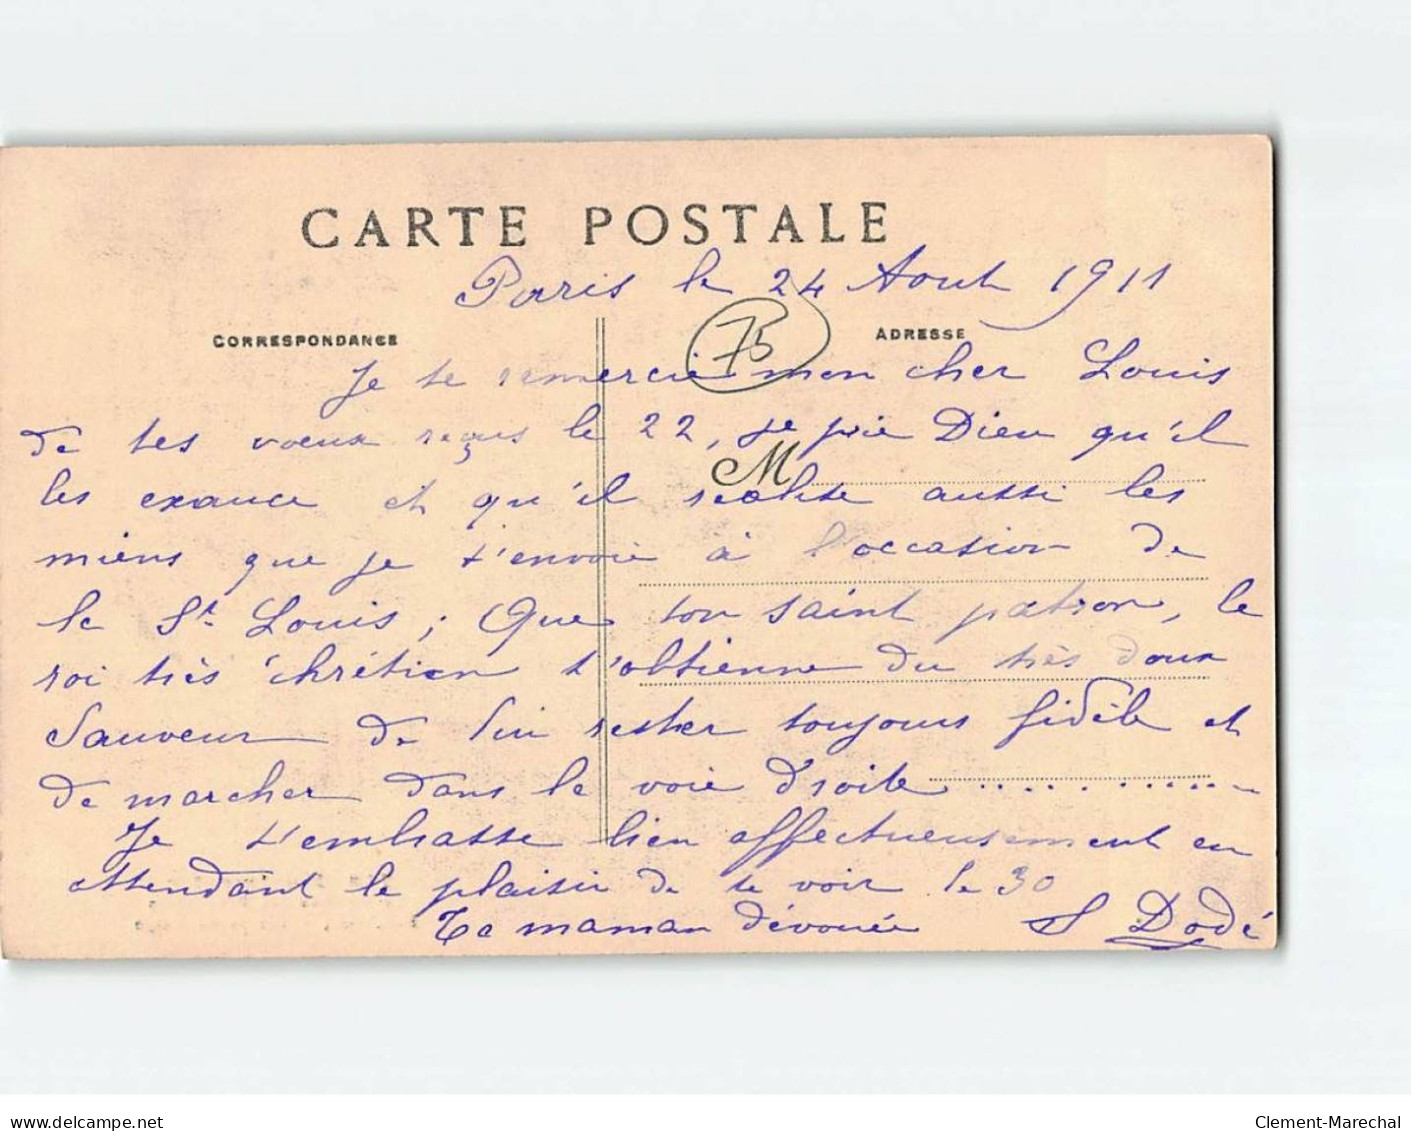 CARTE POSTALE
Paris le 24 Aout 1911
CORRESPONDANCE
75
ADRESSE
Je te remercie mon cher Louis
de tes voeux reçus le 22, je prie Dieu qu'il
M
les exauce et qu'il réalise aussi les
miens que je t'envoie à l'occasion de
la St. Louis; Que ton saint patron, le
roi très chrétien t'obtienne du très doux
Sauveur de lui rester toujours fidèle et
de marcher dans la voie droite...........
Je t'embrasse bien affectueusement en
attendant le plaisir de te voir le 30
Ta maman dévouée S Dodé
www.delcampe.net
Clement-Marechal